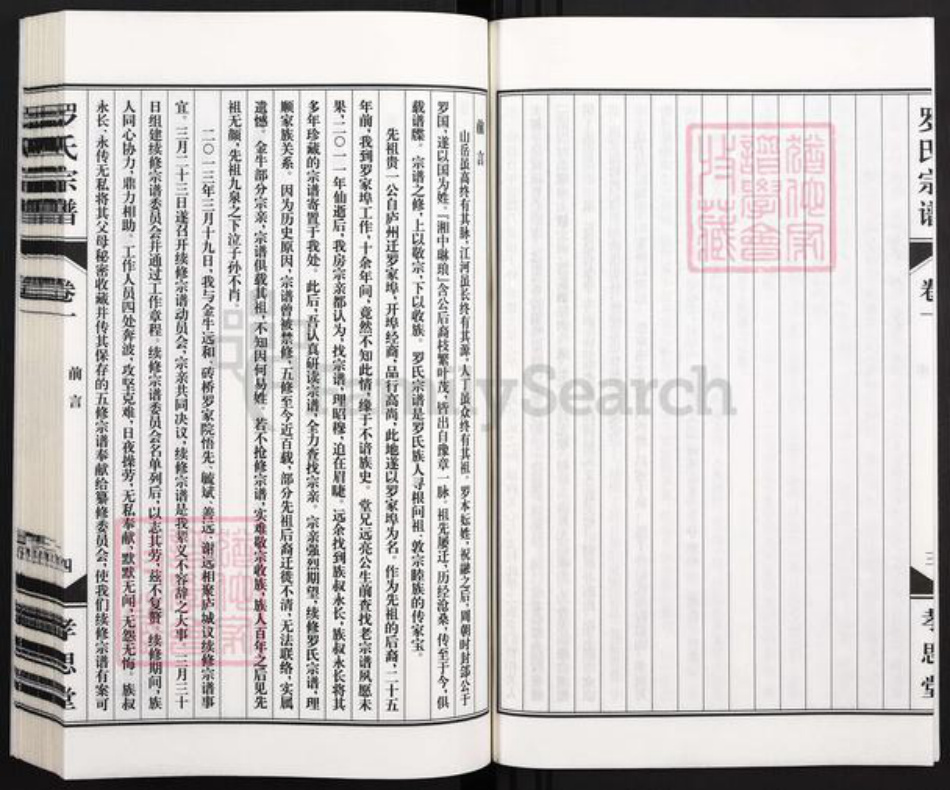 罗氏宗谱
卷一
三
孝思堂
前言
山岳虽高终有其脉，江河虽长终有其源，人丁虽众终有其祖。罗本妘姓，祝融之后，周朝时封部公于
罗国，遂以国为姓。『湘中琳琅』含公后裔枝繁叶茂，皆出自豫章一脉。祖先屡迁，历经沧桑，传至于今，俱
载谱牒。宗谱之修，上以敬宗，下以收族。罗氏宗谱是罗氏族人寻根问祖、敦宗睦族的传家宝。
先祖贵一公自庐州迁罗家埠，开埠经商，品行高尚，此地遂以罗家埠为名。作为先祖的后裔，二十五
年前，我到罗家埠工作，十余年间，竟然不知此情，缘于不谙族史。堂兄远亮公生前查找老宗谱夙愿未
果，二〇一一年仙逝后，我房宗亲都认为，找宗谱，理昭穆，迫在眉睫。远余找到族叔永长，族叔永长将其
多年珍藏的宗谱寄置于我处。此后，吾认真研读宗谱，全力查找宗亲。宗亲强烈期望，续修罗氏宗谱，理
顺家族关系。因为历史原因，宗谱曾被禁修，五修至今近百载，部分先祖后裔迁徙不清，无法联络，实属
遗憾。金牛部分宗亲，宗谱俱载其祖，不知因何易姓。若不抢修宗谱，实难敬宗收族，族人百年之后见先
祖无颜，先祖九泉之下泣子孙不肖。
二〇一三年三月十九日，我与金牛远和、砖桥罗家院悟先、毓斌、善远、谢远相聚庐城议续修宗谱事
宜。三月二十三日遂召开续修宗谱动员会，宗亲共同决议，续修宗谱是我辈义不容辞之大事。三月三十
日组建续修宗谱委员会并通过工作章程。续修宗谱委员会名单列后，以志其劳，兹不复赘。续修期间，族
人同心协力，鼎力相助。工作人员四处奔波，攻坚克难，日夜操劳，无私奉献，默默无闻，无怨无悔。族叔
永长、永传无私将其父母秘密收藏并传其保存的五修宗谱奉献给纂修委员会，使我们续修宗谱有案可
罗氏宗谱
卷一
前言
四
孝思堂